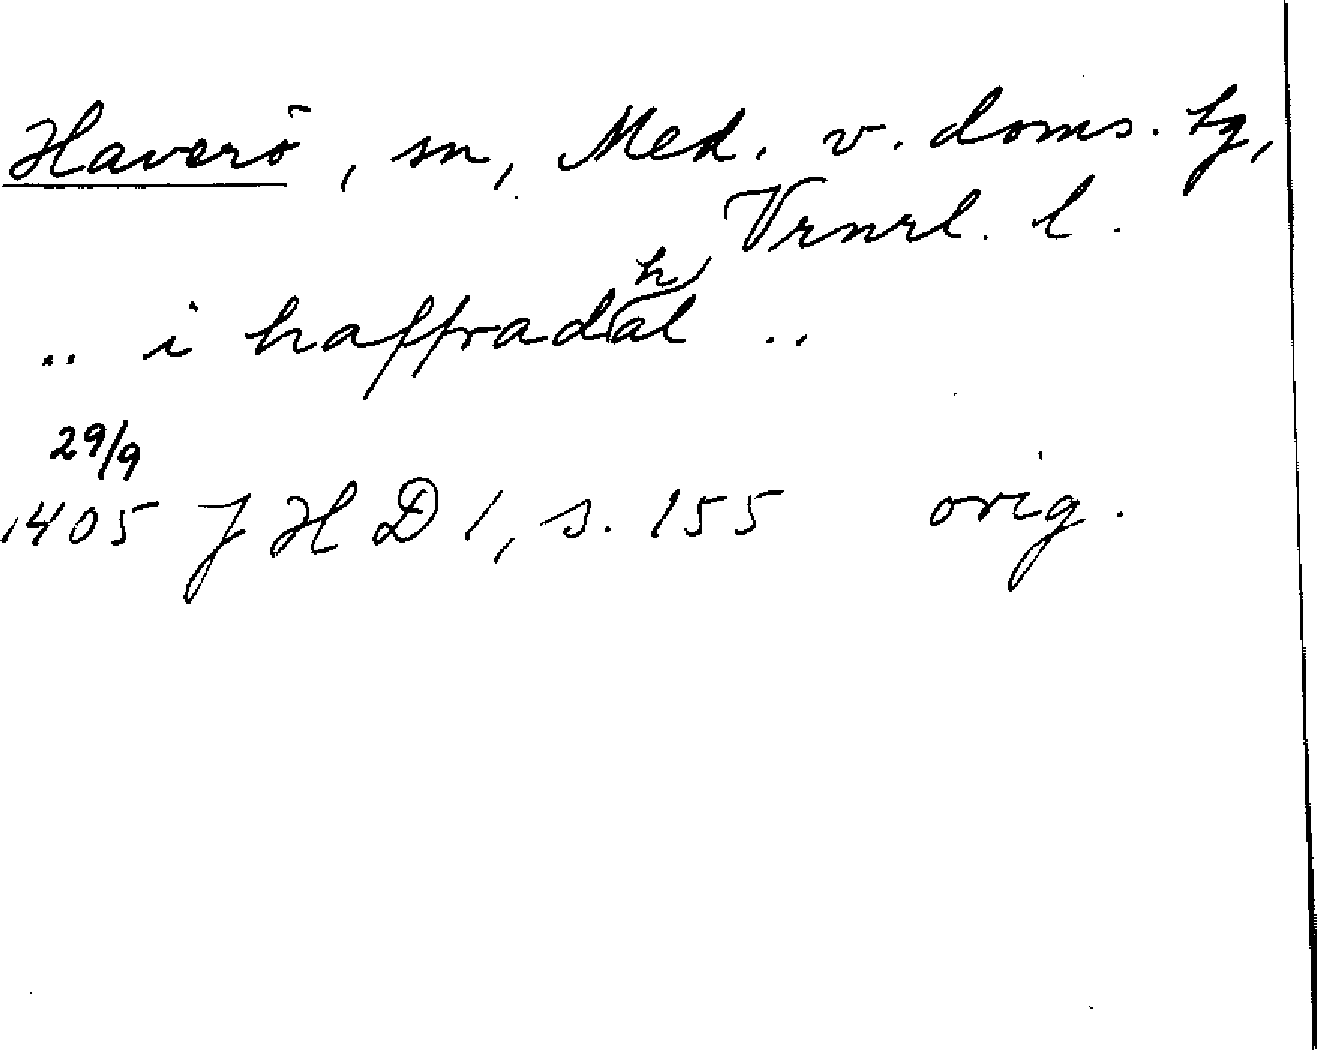 Haverö, sn, Med. v. doms. tg,
Vrnrl. l.
.. i haffradahl ..
29/9
1405 J H D 1, s. 155 orig.